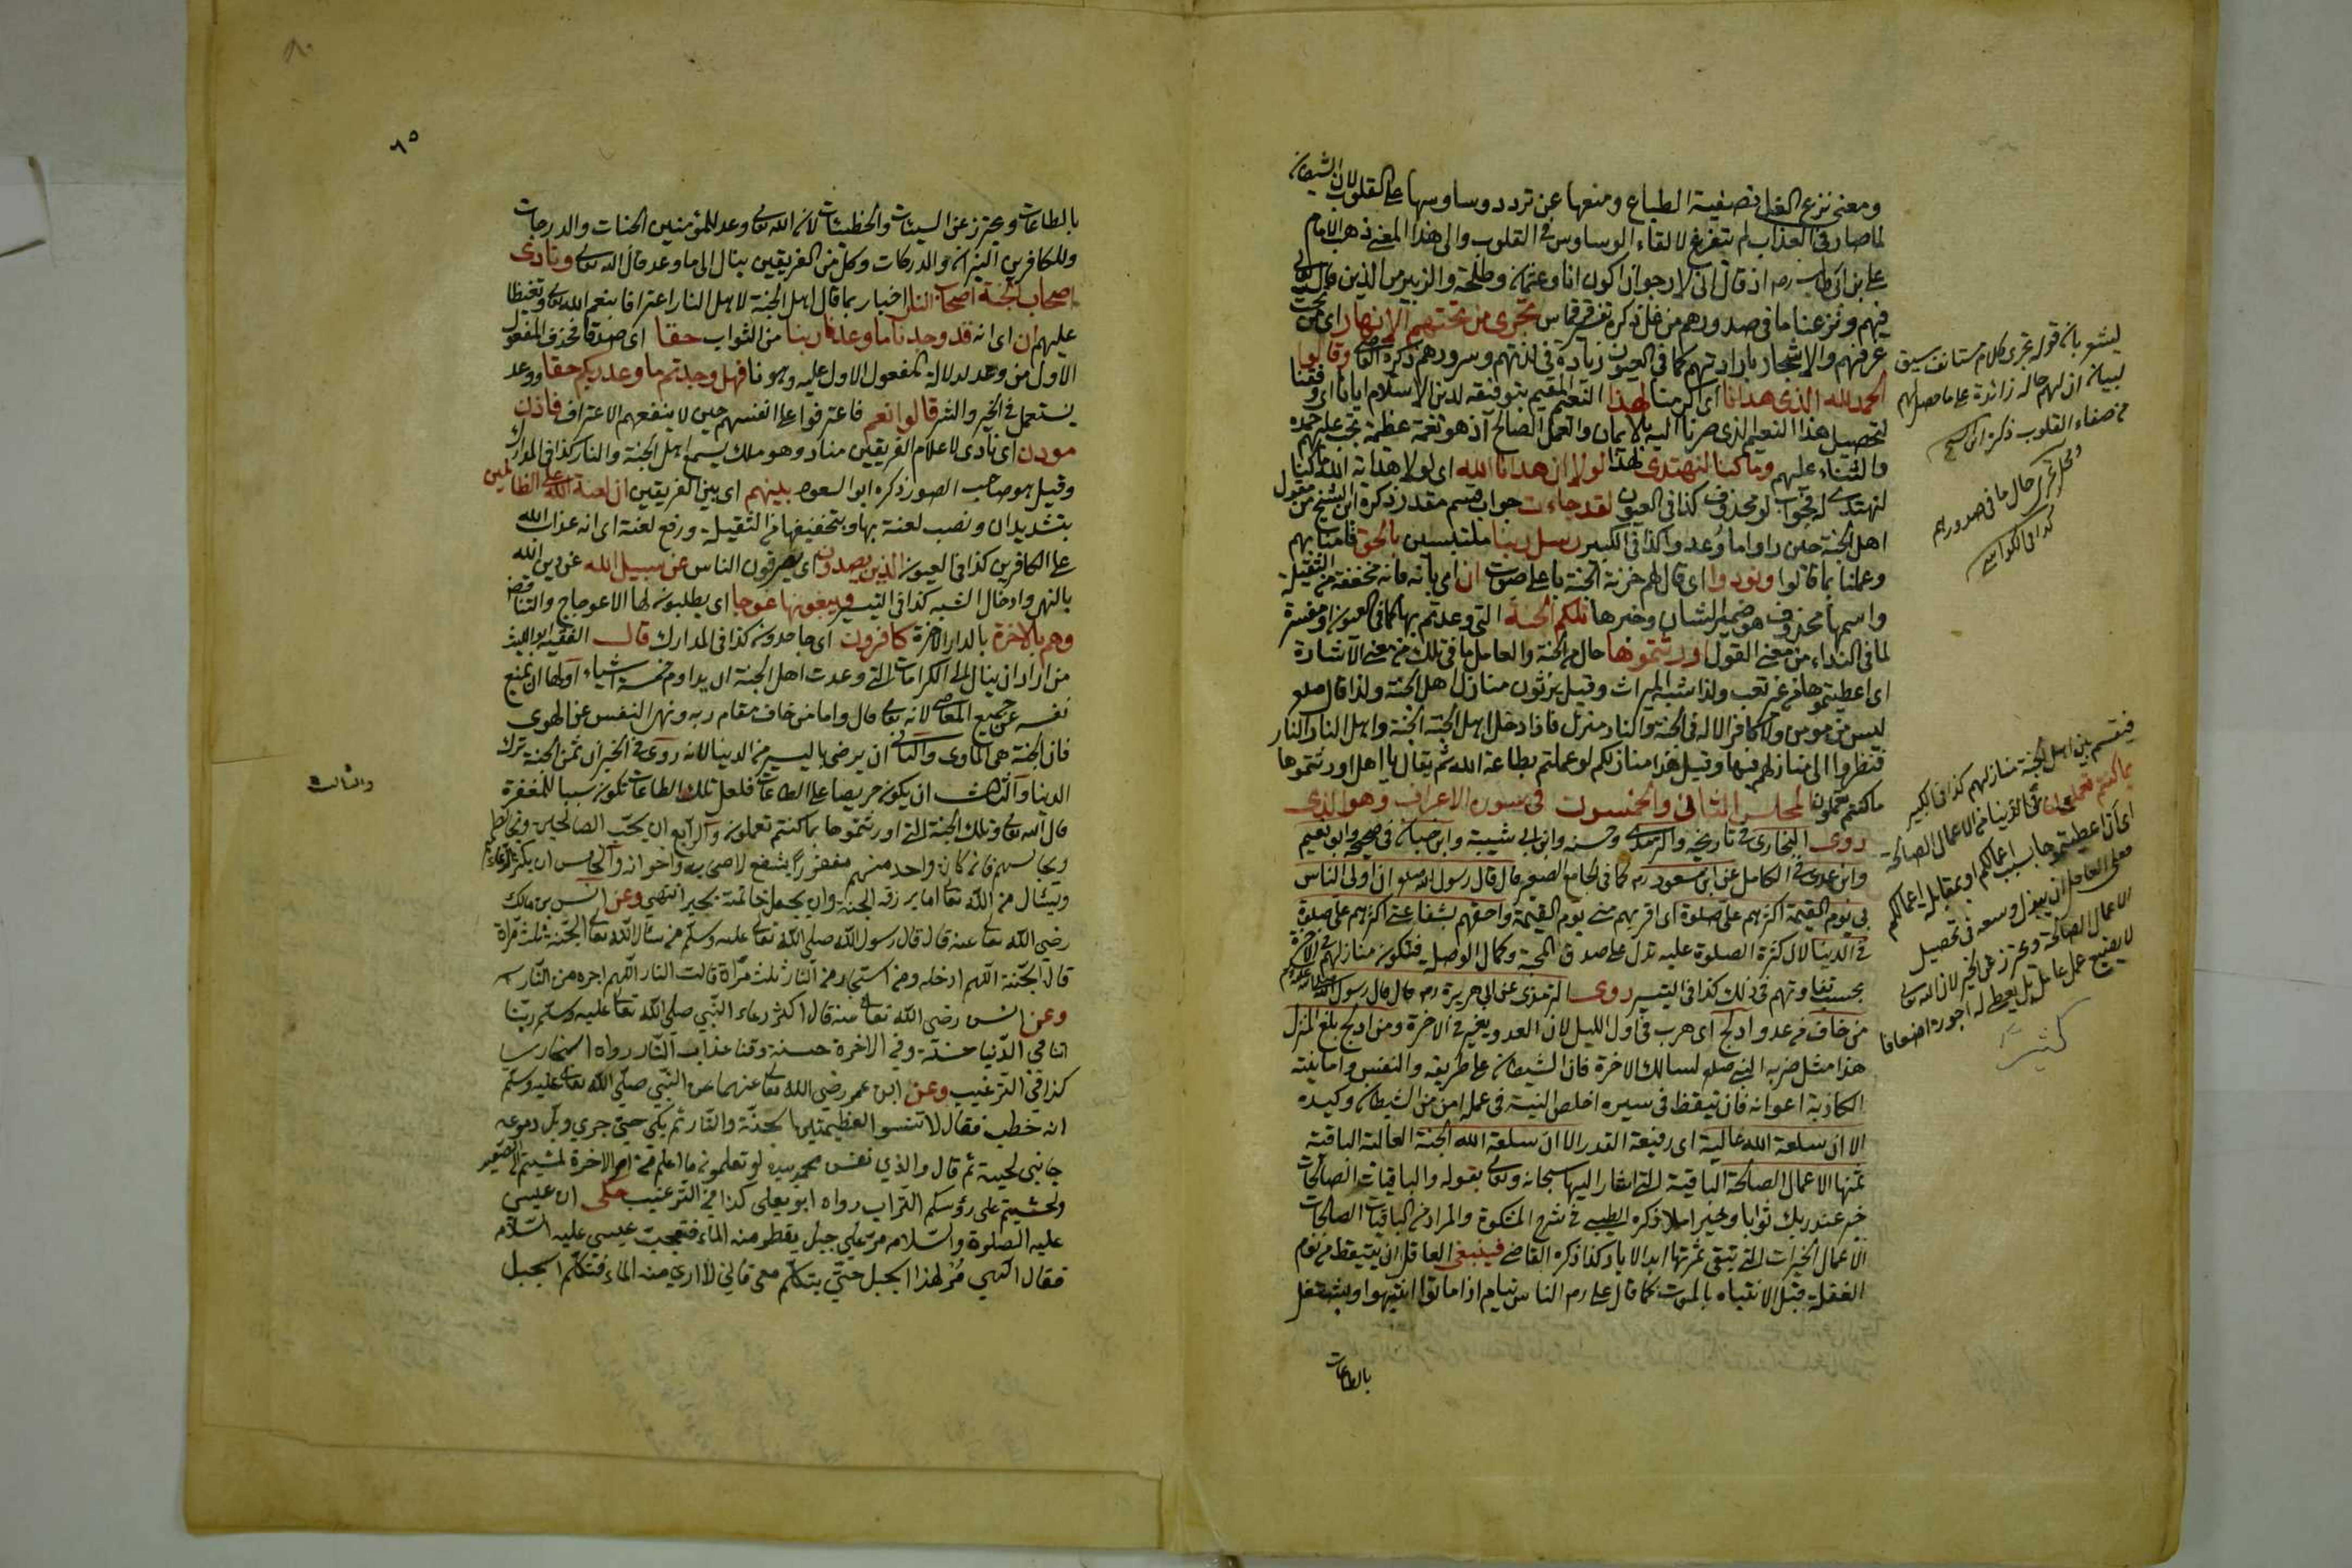 ومعنى نزع الغل تصفية الطباع ومنعها عن تردد وساوسها على القلوب لان الشيطان
لما صار فى العذاب لم يتفرغ لالقاء الوساوس فى القلوب والى هذا المعنى ذهب الامام
على بن ابى طالب رضه اذ قال انى لارجو ان اكون انا وعثمان وطلحة والزبير من الذين قال الله تعالى
فيهم ونزعنا ما فى صدورهم من غل ذكره تجرى من تحتهم الانهار اى من تحت
غرفهم والاشجار بارادتهم كما فى العيون زيادة فى لذتهم وسرورهم ذكره القاضى وقالوا
الحمد لله الذى هدانا اى اكرمنا لهذا النعيم المقيم بتوفيقه لدين الاسلام ايانا اى وفقنا
لتحصيل هذا النعيم الذى صرنا اليه بالايمان والعمل الصالح اذ هو نعمة عظيمة يجب عليهم حمده
والثناء عليهم وما كنا لنهتدى لهذا لولا ان هدانا الله اى لولا هداية الله ما كنا
لنهتدى فجواب لو محذوف كذا فى العيون لقد جاءت جواب قسم مقدر ذكره ابن الشيخ من مقول
اهل الجنة حين راوا ما وعدوا كذا فى الكبير رسل ربنا ملتبسين بالحق فآمنا بهم
وعملنا بما قالوا ونودوا اى قال لهم خزنة الجنة باعلى صوت ان اى بانه فانه مخففة من الثقيلة
واسمها محذوف هو ضمير الشان وخبرها تلكم الجنة التى وعدتم بها كما فى العيون او مفسرة
لما فى النداء من معنى القول اورثتموها حال من الجنة والعامل ما فى تلك من معنى الاشارة
اى اعطيتموها من غير تعب ولذا شبه الميراث وقيل يرثون منازل اهل الجنة ولذا قال صلعم
ليس من مومن ولا كافر الا له فى الجنة والنار منزل فاذا دخل اهل الجنة الجنة واهل النار النار
فنظروا الى منازلهم فيها وقيل هذا منازلكم لو عملتم بطاعة الله ثم يقال يا اهل اورثتموها
ما كنتم تعملون المجلس الثانى والخمسون فى سورة الاعراف وهو الذى
روى البخارى فى تاريخه والترمذى وحسنه وابن ابى شيبة وابن حبان فى صحيحه وابو نعيم
وابن عدى فى الكامل عن ابن مسعود رضه كما فى الجامع الصغير قال قال رسول الله صلعم ان اولى الناس
بى يوم القيمة اكثرهم على صلوة اى اقربهم منى يوم القيمة واحقهم بشفاعتى اكثرهم على صلوة
فى الدنيا لان كثرة الصلوة عليه تدل على صدق المحبة وكمال الوصلة فتكون منازلهم فى الاخرة
بحسب تفاوتهم فى ذلك كذا فى التيسير روى الترمذى عن ابى هريرة رضه قال قال رسول الله صلى الله عليه وسلم
من خاف من عدو ادلج اى هرب فى اول الليل لان العدو يغير فى الاخرة ومن ادلج بلغ المنزل
هذا مثل ضربه النبى صلعم لسالك الاخرة فان الشيطان على طريقه والنفس وامانيته
الكاذبة اعوانه فان تيقظ فى سيره اخلص النية فى عمله امن من الشيطان وكيده
الا ان سلعة الله غالية اى رفيعة القدر الا ان سلعة الله الجنة العالية الباقية
ثمنها الاعمال الصالحة الباقية التى اشار اليها سبحانه وتعالى بقوله والباقيات الصالحات
خير عند ربك ثوابا وخير املا ذكره الطيبى فى شرح المشكوة والمراد من الباقيات الصالحات
الاعمال الخيرات التى تبقى ثمرتها ابد الاباد كذا ذكره القاضى فينبغى العاقل ان يتيقظ من نوم
الغفلة قبل الانتباه بالموت كما قال على رضه الناس نيام اذا ماتوا انتبهوا ويشتغل
بالطاعات
ليشعر بان قوله تجرى كلام مستانف سيق
لبيان ان لهم حالة زائدة على ما حصل لهم
من صفاء القلوب ذكره ابن الشيخ
ومحل تجرى حال ما فى صدورهم
كذا فى الكواشى
فيقسم بين اهل الجنة منازلهم كذا فى الكبير
بما كنتم تعملون فى الدنيا من الاعمال الصالحة
اى ان اعطيتموها بسبب اعمالكم او بمقابلة اعمالكم
فعلى العاقل ان يبذل وسعه فى تحصيل
الاعمال الصالحة ويحترز عن الخير لان الله تعالى
لا يضيع عمل عامل بل يعطى له اجوره اضعافا
كثيرة
٦٥
بالطاعات ويحترز عن السيئات والخطيئات لان الله تعالى وعد للمؤمنين الجنات والدرجات
وللكافرين النيران والدركات وكل من الفريقين ينال الى ما وعد قال الله تعالى ونادى
اصحاب الجنة اصحاب النار اخبار بما قال اهل الجنة لاهل النار اعترافا بنعم الله تعالى وتغيظا
عليهم ان اى انه قد وجدنا ما وعدنا ربنا من الثواب حقا اى صدقا فحذف المفعول
الاول من وعد لدلالة المفعول الاول عليه وهو نا فهل وجدتم ما وعد ربكم حقا ووعد
يستعمل فى الخير والشر قالوا نعم فاعترفوا على انفسهم حين لا ينفعهم الاعتراف فاذن
موذن اى نادى لاعلام الفريقين مناد وهو ملك يسمع اهل الجنة والنار كذا فى المدارك
وقيل هو صاحب الصور ذكره ابو السعود بينهم اى بين الفريقين ان لعنة الله على الظالمين
بتشديد ان ونصب لعنة بها وبتخفيفها من الثقيلة ورفع لعنة اى انه عذاب الله
على الكافرين كذا فى العيون الذين يصدون اى يصرفون الناس عن سبيل الله عن دين الله
بالنهى وادخال الشبه كذا فى التيسير ويبغونها عوجا اى يطلبون لها الاعوجاج والتناقض
وهم بالاخرة بالدار الاخرة كافرون اى جاحدون كذا فى المدارك قال الفقيه ابو الليث
من اراد ان ينال الى الكرامات التى وعدت اهل الجنة ان يداوم خمسة اشياء اولها ان يمنع
نفسه عن جميع المعاصى لانه تعالى قال واما من خاف مقام ربه ونهى النفس عن الهوى
فان الجنة هى الماوى والثانى ان يرضى باليسير من الدنيا لانه روى فى الخبر ان ثمن الجنة ترك
الدنيا والثالث ان يكون حريصا على الطاعات فلعل تلك الطاعات تكون سببا للمغفرة
قال الله تعالى وتلك الجنة التى اورثتموها بما كنتم تعملون والرابع ان يحب الصالحين ويخالطهم
ويجالسهم فانه كان واحد منهم مغفورا يشفع لاصحابه واخوانه والخامس ان يكثر الدعاء
ويسئال من الله تعالى ما يرزقه الجنة وان يجعل خاتمته بخير انتهى وعن انس بن مالك
رضى الله تعالى عنه قال قال رسول الله صلى الله تعالى عليه وسلم من سئال الله تعالى الجنة ثلث مرات
قال الجنة اللهم ادخله ومن استجار من النار ثلث مراة قالت النار اللهم اجره من النار
وعن انس رضى الله تعالى عنه قال اكثر دعاء النبى صلى الله تعالى عليه وسلم ربنا
اتنا فى الدنيا حسنة وفى الاخرة حسنة وقنا عذاب النار رواه البخارى
كذا فى الترغيب وعن ابن عمر رضى الله تعالى عنهما عن النبى صلى الله تعالى عليه وسلم
انه خطب فقال لا تنسوا العظيمتين الجنة والنار ثم بكى حتى جرى وبل دموعه
جانبى لحيته ثم قال والذي نفس محمد بيده لو تعلمون ما اعلم من امر الاخرة لمشيتم الى الصعيد
ولحشيتم على رؤسكم التراب رواه ابو يعلى كذا فى الترغيب حكى ان عيسى
عليه الصلوة والسلام مر على جبل يقطر منه الماء فتعجب عيسى عليه السلام
فقال الهى مر لهذا الجبل حتى يتكلم معى فانى لارى منه الماء فتكلم الجبل
والثالث